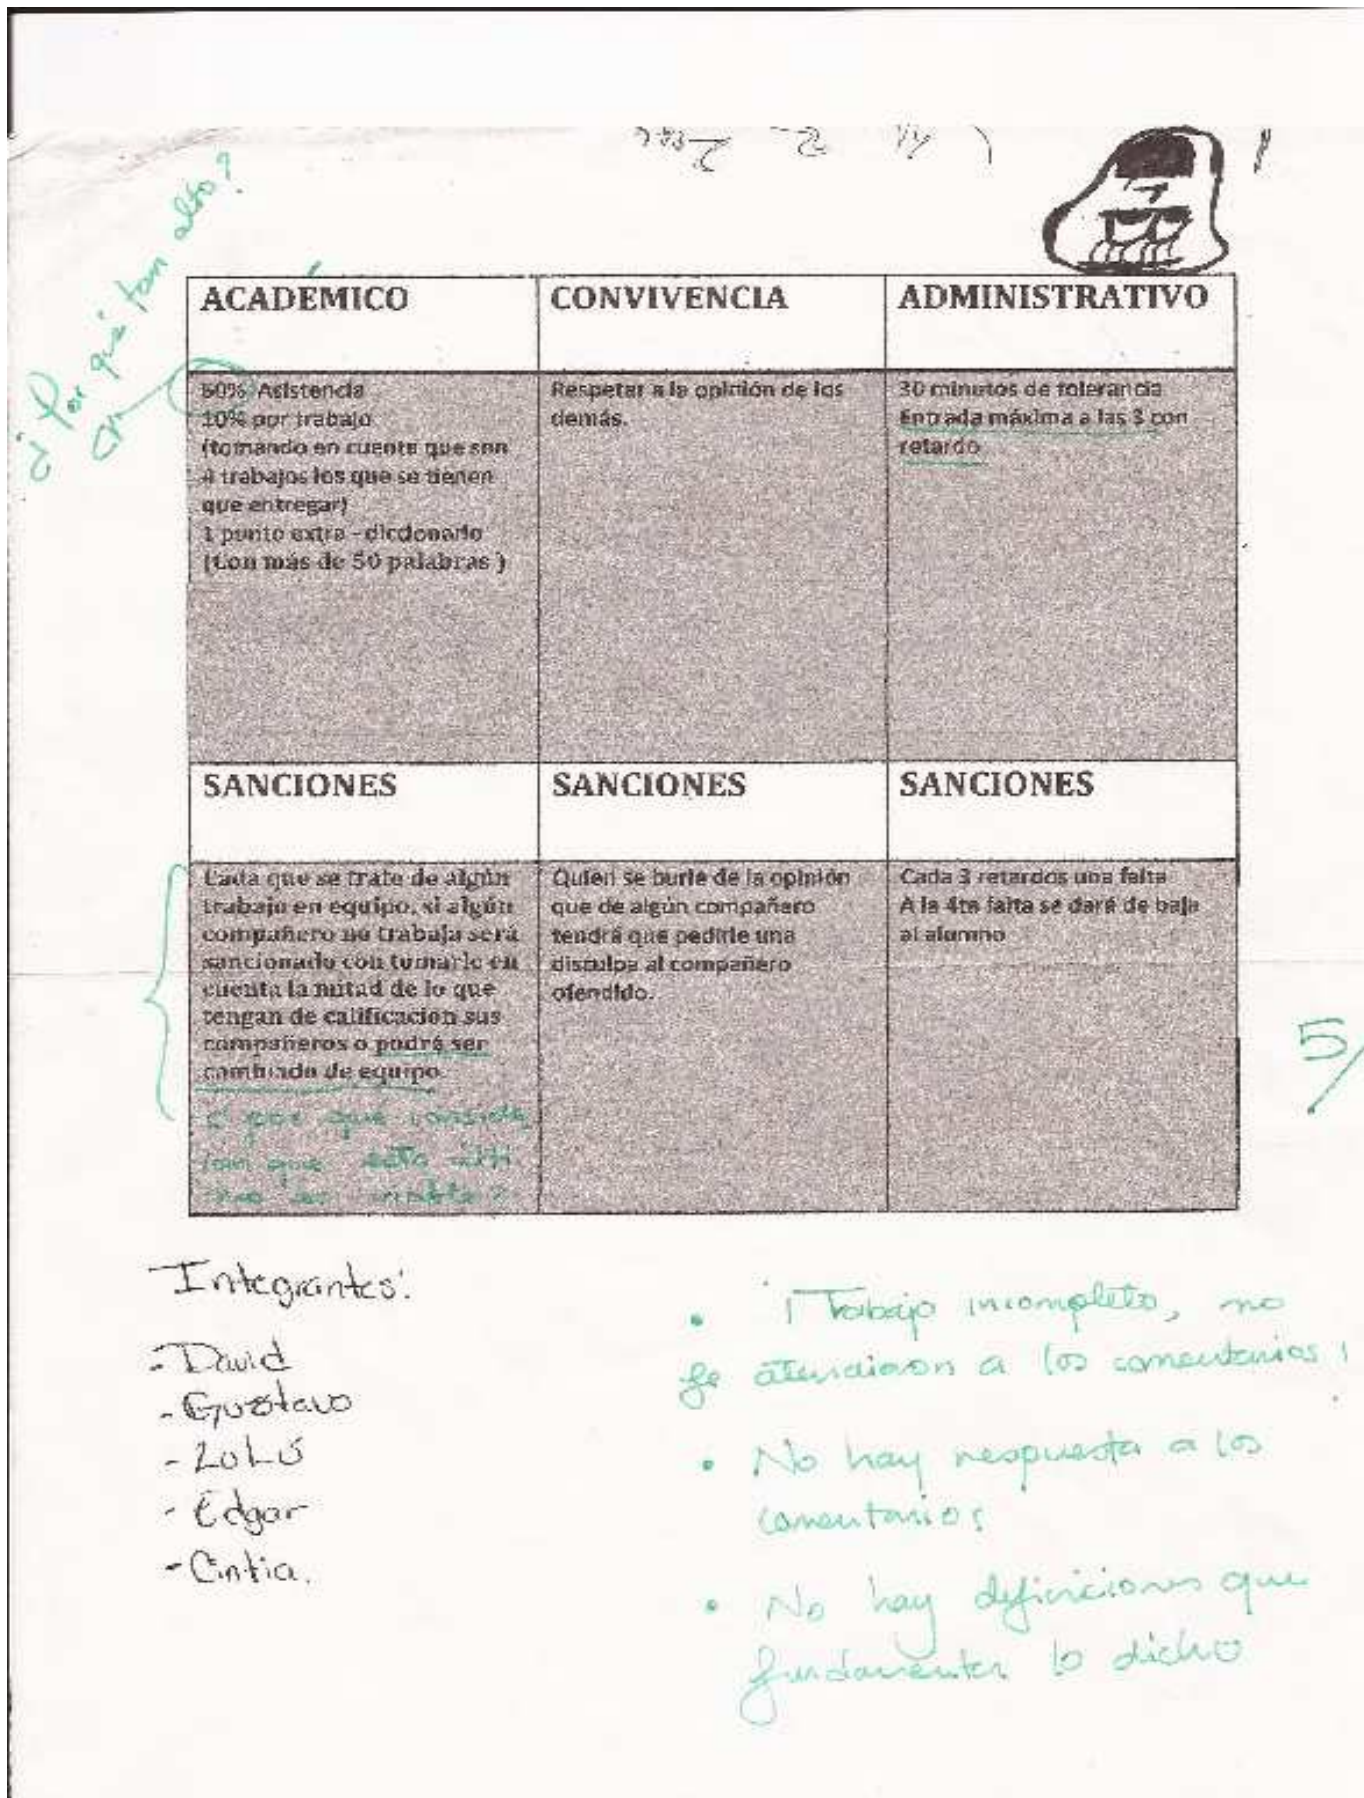 ¿Por qué tan alto?
ACADÉMICO
60% Asistencia
10% por trabajo
(tomando en cuenta que son
4 trabajos los que se tienen
que entregar)
1 punto extra - diccionario
(Con más de 50 palabras )
CONVIVENCIA
Respetar a la opinión de los
demás.
ADMINISTRATIVO
30 minutos de tolerancia
Entrada máxima a las 3 con
retardo
SANCIONES
Cada que se trate de algún
trabajo en equipo, si algún
compañero no trabaja será
sancionado con tomarle en
cuenta la mitad de lo que
tengan de calificación sus
compañeros o podrá ser
cambiado de equipo.
¿por qué conside
ran que esto últi
mo es viable?
SANCIONES
Quien se burle de la opinión
que de algún compañero
tendrá que pedirle una
disculpa al compañero
ofendido.
SANCIONES
Cada 3 retardos una falta
A la 4ta falta se dará de baja
al alumno
5/
Integrantes:
- David
- Gustavo
- LuLú
- Edgar
- Cintia.
• ¡Trabajo incompleto, no
se atendieron a los comentarios!
• No hay respuesta a los
comentarios
• No hay definiciones que
fundamenten lo dicho